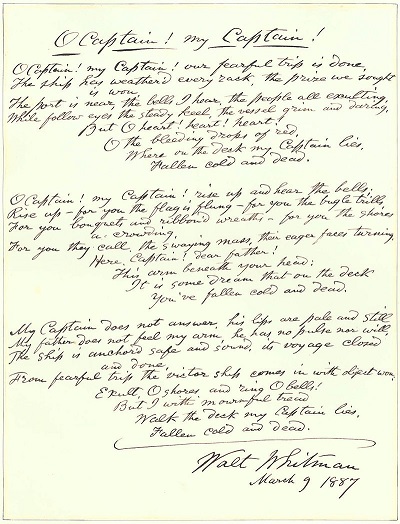 O Captain! my Captain!
O Captain! my Captain! our fearful trip is done,
The ship has weather'd every rack the prize we sought
is won,
The port is near, the bells I hear, the people all exulting,
While follow eyes the steady keel, the vessel grim and daring,
But O heart! heart! heart!
O the bleeding drops of red,
Where on the deck my Captain lies,
Fallen cold and dead.
O Captain! my Captain! rise up and hear the bells;
Rise up - for you the flag is flung - for you the bugle trills,
For you bouquets and ribbon'd wreaths - for you the shores
a-crowding,
For you they call, the swaying mass, their eager faces turning,
Here, Captain! dear father!
This arm beneath your head;
It is some dream that on the deck
You've fallen cold and dead.
My Captain does not answer, his lips are pale and still
My father does not feel my arm, he has no pulse nor will
The ship is anchor'd safe and sound, its voyage closed
and done,
From fearful trip the victor ship comes in with object won,
Exult, O shores, and ring O bells!
But I with mournful tread
Walk the deck my Captain lies,
Fallen cold and dead.
Walt Whitman
March 9 1887